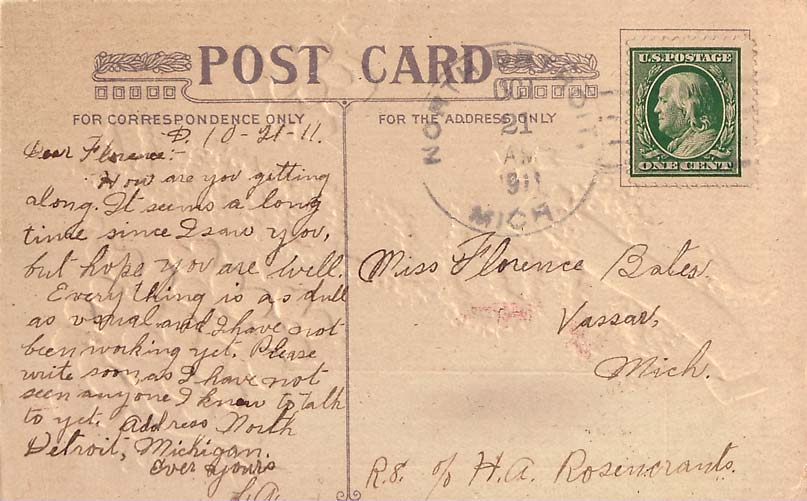 POST CARD
FOR CORRESPONDENCE ONLY
D. 10-21-11.
Dear Florence:-
How are you getting
along. It seems a long
time since I saw you,
but hope you are well.
Everything is as dull
as usual and I have not
been working yet. Please
write soon, as I have not
seen anyone I know to talk
to yet. Address North
Detroit, Michigan.
Ever yours
L.A.
FOR THE ADDRESS ONLY
NORTH DETROIT,
OCT
21
AM
1911
MICH
U.S. POSTAGE
ONE CENT
Miss Florence Bates.
Vassar,
Mich.
R.8. c/o H.A. Rosencrants.